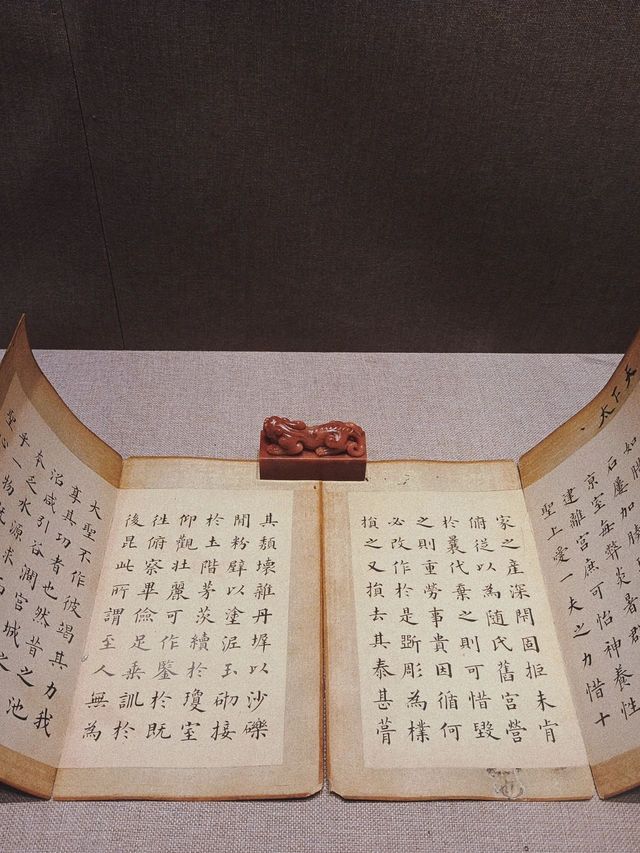 天下太
京室每弊炎暑群
建離宮庶可怡神養性
聖上愛一夫之力惜十
家之產深閇固拒未肯
俯從以為隨氏舊宮營
於曩代棄之則可惜毀
之則重勞事貴因循何
必改作於是斲彫為樸
損之又損去其泰甚葺
其頹壞雜丹墀以沙礫
閒粉壁以塗泥玉砌接
於土階茅茨續於瓊室
仰觀壯麗可作鑒於既
往俯察卑儉足垂訓於
後昆此所謂至人無為
大聖不作彼竭其力我
享其功者也然昔之池
沼咸引谷澗宮城之
本乏水源求而
乎一物
聖心